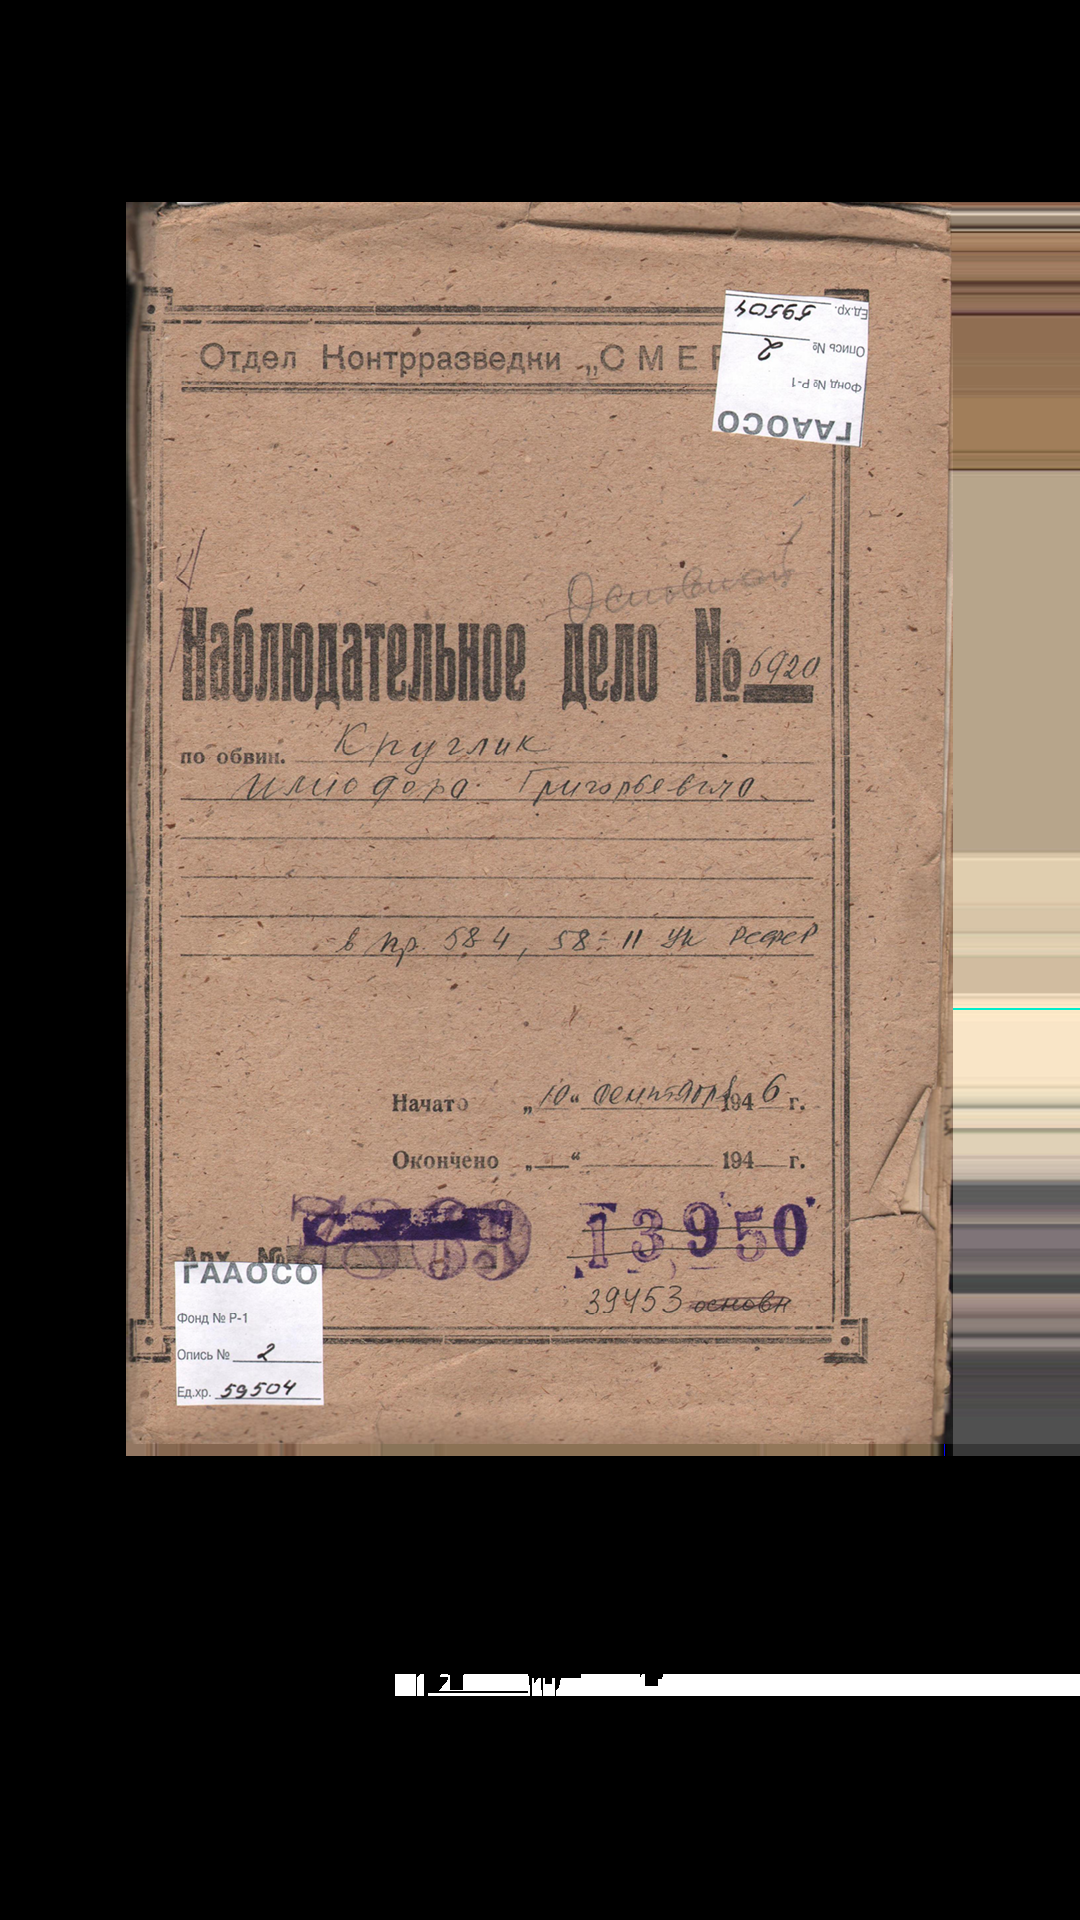 Отдел Контрразведки „СМЕР
ГААОСО
Фонд № Р-1
Опись № 2
Ед.хр. 59504
Основной
Наблюдательное дело № 6920
по обвин. Круглик
Илиодора Григорьевича
в пр. 58-4, 58-11 УК РСФСР
Начато „10“ сентября 1946 г.
Окончено „ “ 194 г.
13950
Арх. №
39453 основн
ГААОСО
Фонд № Р-1
Опись № 2
Ед.хр. 59504